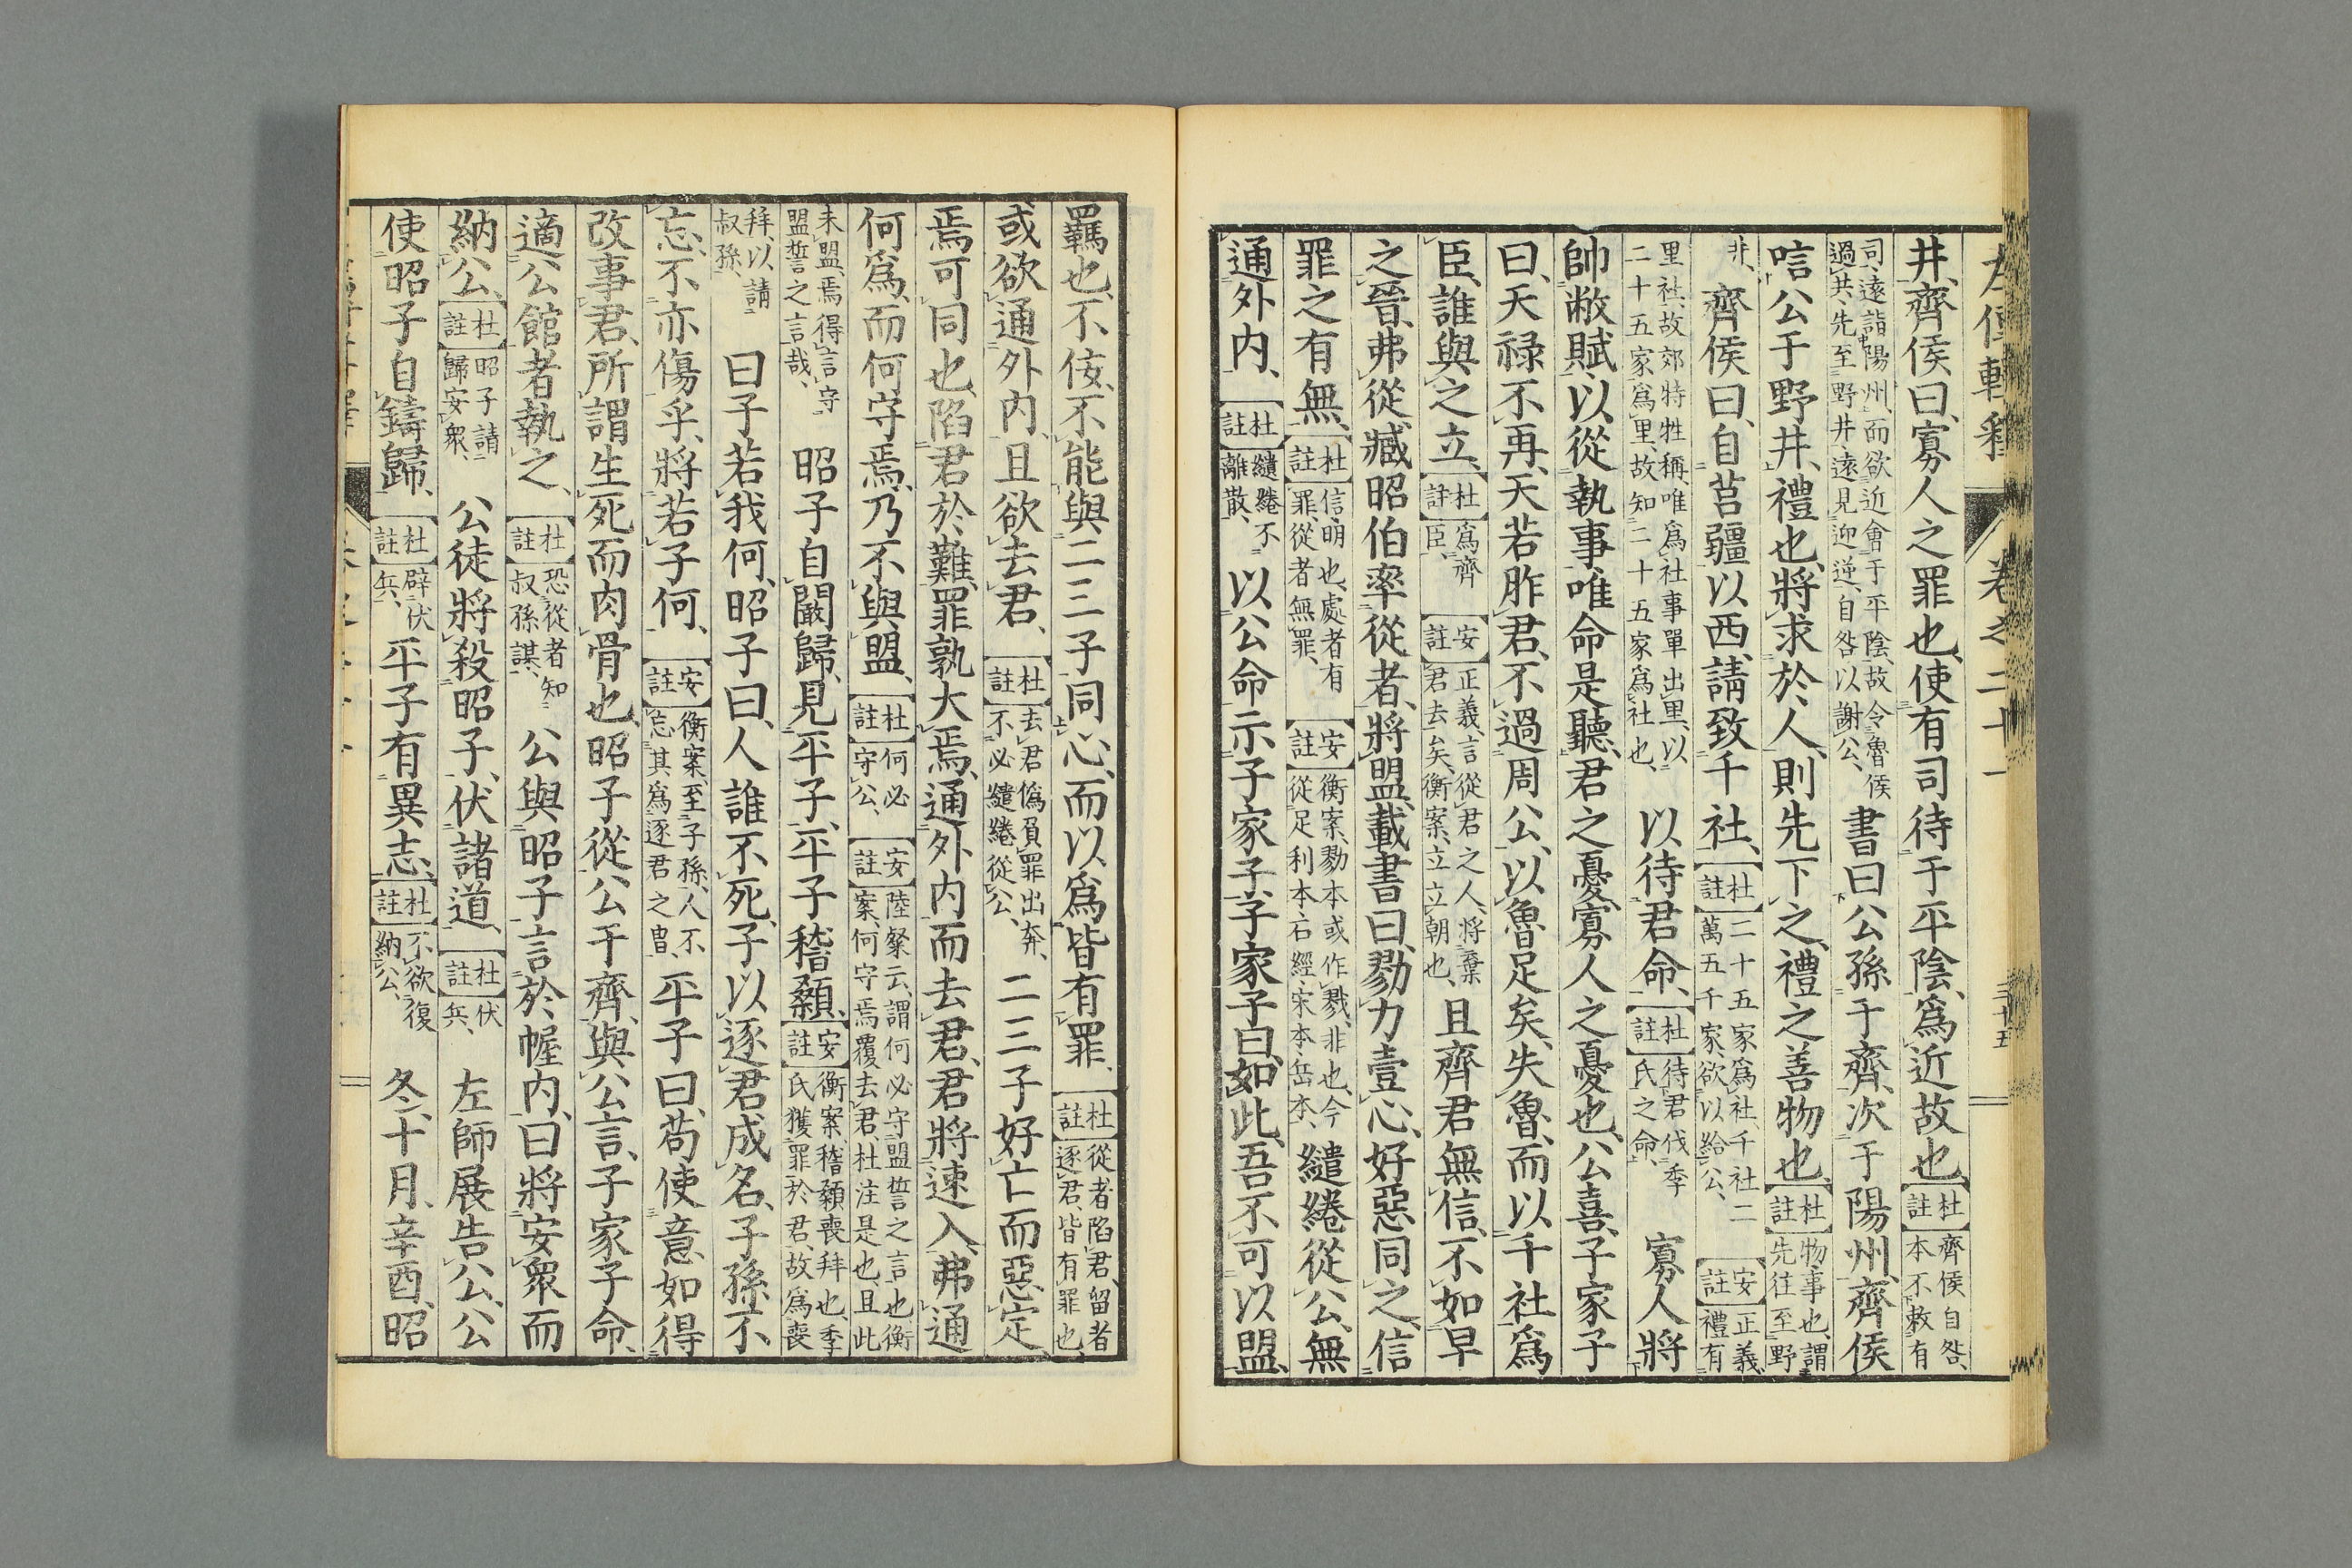 左傳輯釋 卷之二十一 三十五
井、齊侯曰、寡人之罪也、使有司待于平陰、爲近故也、杜註齊侯自咎、本不敕有
司、遠詣陽州、而欲近會于平陰、故令魯侯過共、先至野井、遠見迎逆、自咎以謝公、書曰公孫于齊、次于陽州、齊侯
唁公于野井、禮也、將求於人、則先下之、禮之善物也、杜註物、事也、謂先往至野
井、齊侯曰、自莒疆以西、請致千社、杜註二十五家爲社、千社二萬五千家、欲以給公、安註正義、禮有
里社、故郊特牲稱、唯爲社事單出里、以二十五家爲里、故知二十五家爲社也、以待君命、杜註待君伐季氏之命、寡人將
帥敝賦、以從執事、唯命是聽、君之憂、寡人之憂也、公喜、子家子
曰、天祿不再、天若胙君、不過周公、以魯足矣、失魯、而以千社爲
臣、誰與之立、杜註爲齊臣、安註正義、言從君之人、將棄君去矣、衡案、立立朝也、且齊君無信、不如早
之晉、弗從、臧昭伯率從者、將盟、載書曰、勠力壹心、好惡同之、信
罪之有無、杜註信、明也、處者有罪、從者無罪、安註衡案、勠本或作戮、非也、今從足利本石經宋本岳本、繾綣從公、無
通外内、杜註繾綣不離散、以公命示子家子、子家子曰、如此、吾不可以盟、
羈也不佞、不能與二三子同心、而以爲皆有罪、杜註從者陷君、留者逐君、皆有罪也
或欲通外内、且欲去君、杜註去君僞負罪出奔、不必繾綣從公、二三子好亡而惡定、
焉可同也、陷君於難、罪孰大焉、通外内而去君、君將速入、弗通
何爲、而何守焉、乃不與盟、杜註何必守公、安註陸粲云、謂何必守盟誓之言也、衡案、何守焉覆去君、杜注是也、且此
未盟、焉得言守盟誓之言哉、昭子自闞歸、見平子、平子稽顙、安註衡案、稽顙喪拜也、季氏獲罪於君、故爲喪
拜、以請叔孫、曰子若我何、昭子曰、人誰不死、子以逐君成名、子孫不
忘、不亦傷乎、將若子何、安註衡案、至子孫、人不忘其爲逐君之冑、平子曰、苟使意如得
改事君、所謂生死而肉骨也、昭子從公于齊、與公言、子家子命、
適公館者執之、杜註恐從者知叔孫謀、公與昭子言於幄内、曰將安衆而
納公、杜註昭子請歸安衆、公徒將殺昭子、伏諸道、杜註伏兵、左師展告公、公
使昭子自鑄歸、杜註辟伏兵、平子有異志、杜註不欲復納公、冬、十月、辛酉、昭